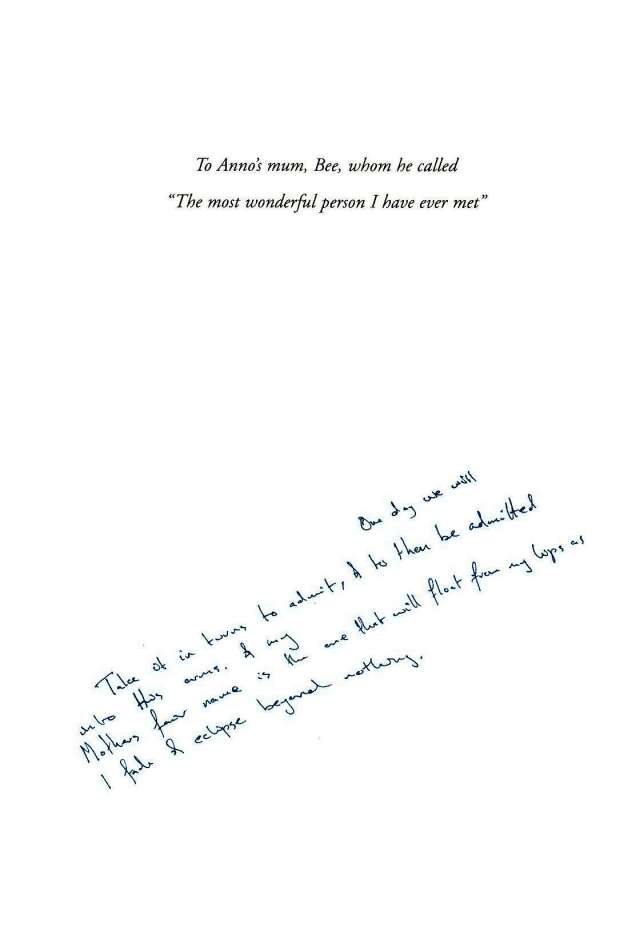 To Anno's mum, Bee, whom he called
“The most wonderful person I have ever met”
One day we will
Take it in turns to admit, & to then be admitted
into His arms. & my
Mothers fair name is the one that will float from my lips as
I fade & eclipse beyond nothing.